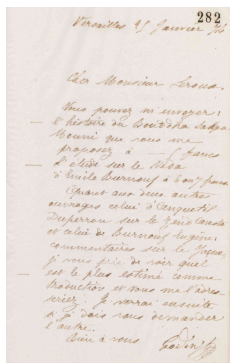 282
Versailles 25 Janvier 76
Cher Monsieur Leroux.
Vous pouvez m'envoyer :
l'histoire du Bouddha Sakya
Mouni que vous me
proposez à francs
l'étude sur le Véda
d'Emile Burnouf à 6 ou 7 francs
Quant aux deux autres
ouvrages celui d'Anquetil
Duperron sur le Zend Avesta
et celui de Burnouf Eugène
commentaires sur le Yaçna,
je vous prie de voir quel
est le plus estimé comme
traduction et vous me l'adres-
serez. Je verrai ensuite
si je dois vous demander
l'autre.
Bien à vous
Godin